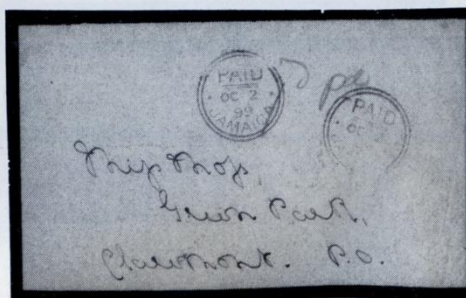 PAID
OC 2
99
JAMAICA
PAID
OC
Green Park,
Claremont. P.O.